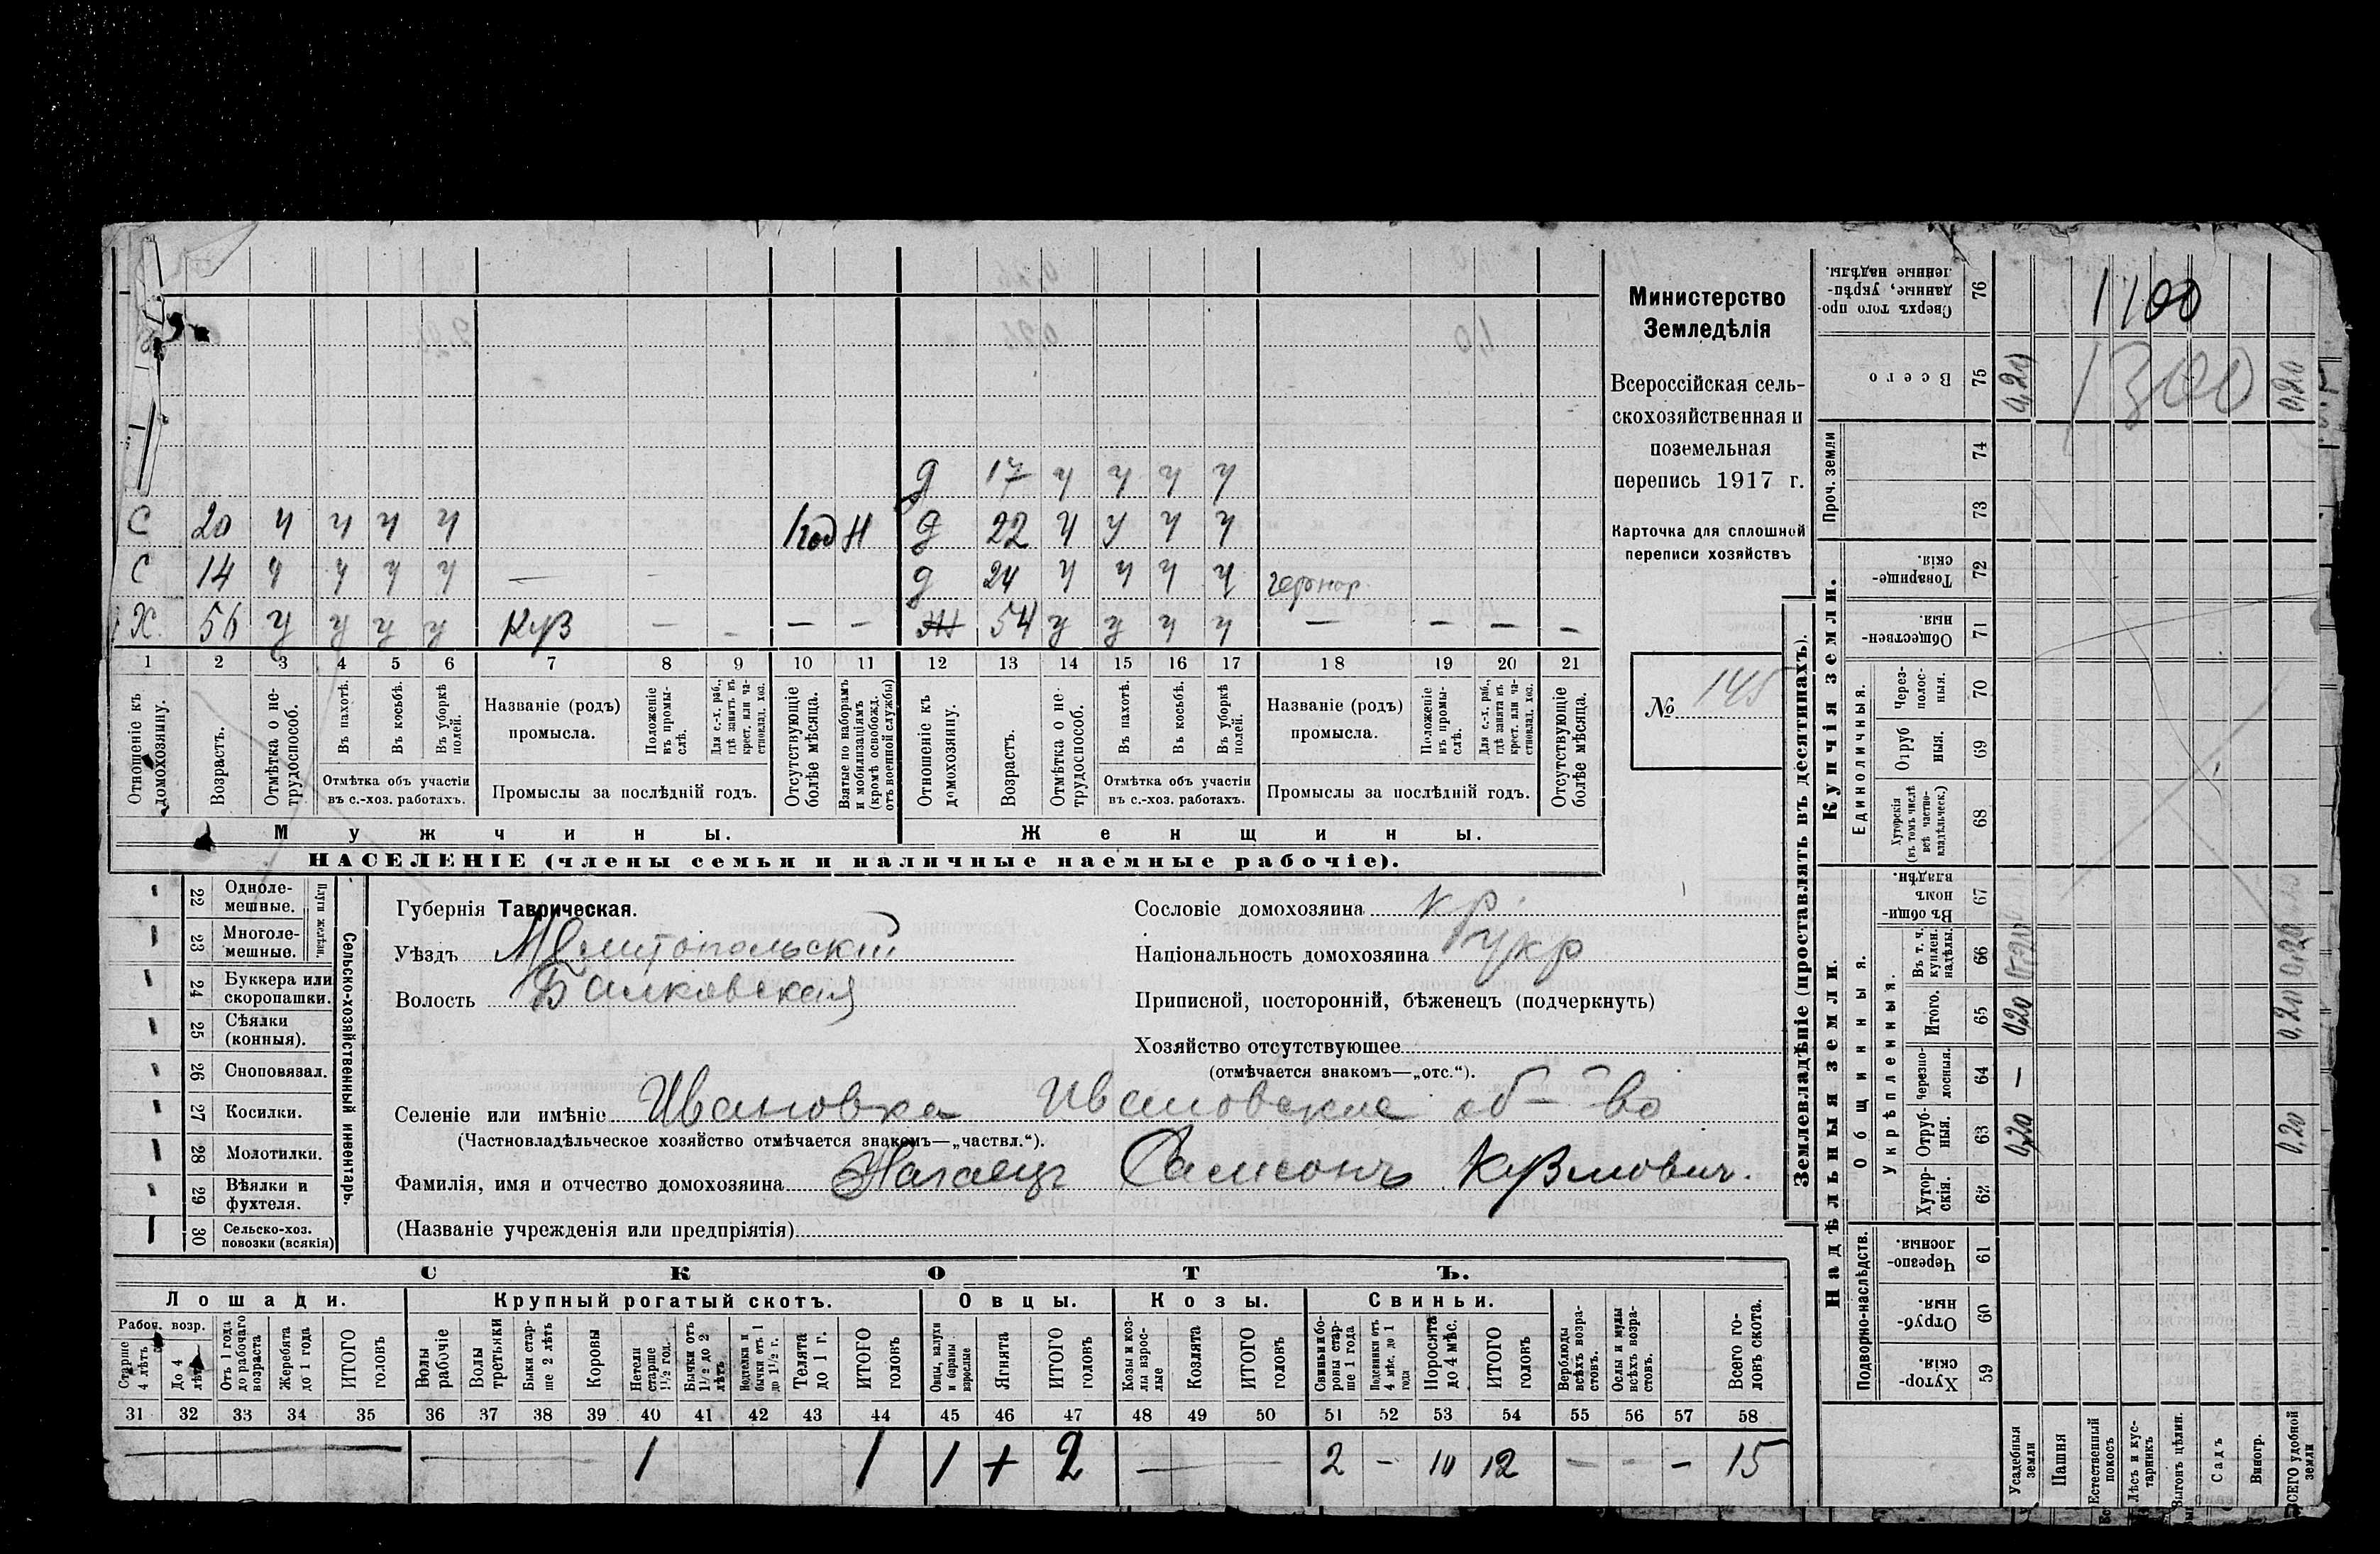 Министерство
Земледѣлія
Всероссійская сель-
скохозяйственная и
поземельная
перепись 1917 г.
Карточка для сплошной
переписи хозяйствъ
№ 145
д 17 ч ч ч ч
С 20 ч ч ч ч 1 год Н д 22 ч ч ч ч
С 14 ч ч ч ч — — д 24 ч ч ч ч
Х. 56 ч ч ч ч Куз — — — — 54 ч ч ч ч — — — —
1 2 3 4 5 6 7 8 9 10 11 12 13 14 15 16 17 18 19 20 21
Отношеніе къ домохозяину.
Возрастъ.
Отмѣтка о не-трудоспособ.
Въ пахотѣ.
Въ косьбѣ.
Въ уборкѣ полей.
Отмѣтка объ участіи
въ с.-хоз. работахъ.
Названіе (родъ)
промысла.
Положеніе въ промы-слѣ.
Для с.-х. раб., гдѣ занятъ въ крест. или ча-стновлад. хоз.
Промыслы за послѣдній годъ.
Отсутствующіе болѣе мѣсяца.
Взятые по наборамъ и мобилизаціямъ (кромѣ освобожд. отъ военной службы)
Отношеніе къ домохозяину.
Возрастъ.
Отмѣтка о не-трудоспособ.
Въ пахотѣ.
Въ косьбѣ.
Въ уборкѣ полей.
Отмѣтка объ участіи
въ с.-хоз. работахъ.
Названіе (родъ)
промысла.
Положеніе въ промы-слѣ.
Для с.-х. раб., гдѣ занята въ крест. или ча-стновлад. хоз.
Промыслы за послѣдній годъ.
Отсутствующіе болѣе мѣсяца.
Мужчины. Женщины.
НАСЕЛЕНІЕ (члены семьи и наличные наемные рабочіе).
22 Одноле-мешные.
23 Многоле-мешные.
Плуги желѣзн.
24 Буккера или скоропашки.
25 Сѣялки (конныя).
26 Сноповязал.
27 Косилки.
28 Молотилки.
29 Вѣялки и фухтеля.
30 Сельско-хоз. повозки (всякія)
Сельско-хозяйственный инвентарь.
Губернія Таврическая.
Уѣздъ Мелитопольскій
Волость Балковская
Сословіе домохозяина кр.
Національность домохозяина укр
Приписной, посторонній, бѣженецъ (подчеркнуть)
Хозяйство отсутствующее
(отмѣчается знакомъ—„отс.“).
Селеніе или имѣніе Ивановка Ивановские об-во
(Частновладѣльческое хозяйство отмѣчается знакомъ—„частвл.“).
Фамилія, имя и отчество домохозяина Нагаецъ Самсонъ Кузмович.
(Названіе учрежденія или предпріятія)
СКОТЪ.
Лошади. Крупный рогатый скотъ. Овцы. Козы. Свиньи.
Рабоч. возр.
Старше 4 лѣтъ
До 4 лѣтъ
Отъ 1 года до рабочаго возраста
Жеребята до 1 года
ИТОГО головъ
Волы рабочіе
Волы третьяки
Быки стар-ше 2 лѣтъ
Коровы
Нетели старше 1 1/2 год.
Бычки отъ 1 1/2 до 2 лѣтъ
Подтелки и бычки отъ 1 до 1 1/2 г.
Телята до 1 г.
ИТОГО головъ
Овцы, валухи и бараны взрослые
Ягнята
ИТОГО головъ
Козы и коз-лы взрос-лые
Козлята
ИТОГО головъ
Свиньи и бо-ровы стар-ше 1 года
Подсвинки отъ 4 мѣс. до 1 года
Поросята до 4 мѣс.
ИТОГО головъ
Верблюды всѣхъ возра-стовъ.
Ослы и мулы всѣхъ возра-стовъ.
Всего го-ловъ скота.
31 32 33 34 35 36 37 38 39 40 41 42 43 44 45 46 47 48 49 50 51 52 53 54 55 56 57 58
— — 1 1 1 + 2 — 2 — 10 12 — — — 15
Землевладѣніе (проставлять въ десятинахъ).
Купчія земли.
Надѣльныя земли.
Сверхъ того про-данные, укрѣп-ленные надѣлы. 76 1100
Всего 75 0,20 1300 0,20
Проч. земли 74
73
Товарище-скія. 72
Обществен-ныя. 71
Единоличныя.
Через-полос-ныя. 70
Отруб-ныя. 69
Хуторскія (въ томъ числѣ всѣ частно-владѣльческ.) 68
Общинныя.
Въ общи-номъ владѣн. 67
Укрѣпленныя.
Въ т. ч. куплен. надѣлы. 66
Итого. 65 0,20 0,20
черезпо-лосныя. 64 —
Отруб-ныя. 63 0,20 0,20
Хутор-скія. 62
Подворно-наслѣдств.
Черезпо-лосныя. 61
Отруб-ныя. 60
Хутор-скія. 59
Усадебныя земли
Пашня
Естественный покосъ
Лѣсъ и кус-тарникъ
Выгонъ цѣлин.
Садъ
Виногр.
ВСЕГО удобной земли